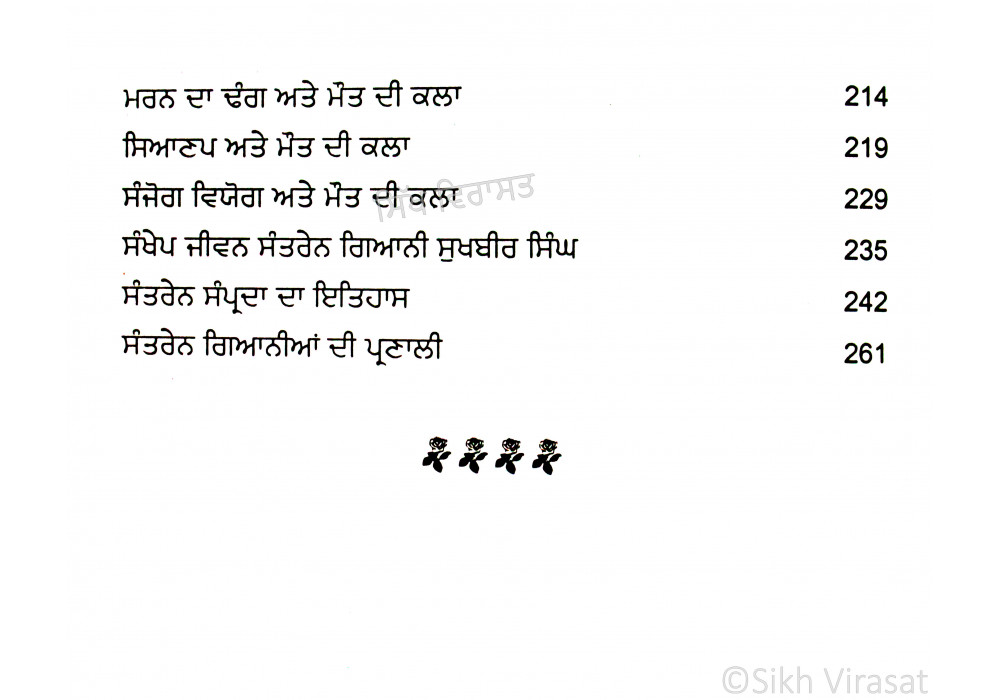 ਮਰਨ ਦਾ ਢੰਗ ਅਤੇ ਮੌਤ ਦੀ ਕਲਾ 214
ਸਿਆਣਪ ਅਤੇ ਮੌਤ ਦੀ ਕਲਾ 219
ਸਿੱਖ ਵਿਰਾਸਤ
ਸੰਜੋਗ ਵਿਯੋਗ ਅਤੇ ਮੌਤ ਦੀ ਕਲਾ 229
ਸੰਖੇਪ ਜੀਵਨ ਸੰਤਰੇਨ ਗਿਆਨੀ ਸੁਖਬੀਰ ਸਿੰਘ 235
ਸੰਤਰੇਨ ਸੰਪ੍ਰਦਾ ਦਾ ਇਤਿਹਾਸ 242
ਸੰਤਰੇਨ ਗਿਆਨੀਆਂ ਦੀ ਪ੍ਰਣਾਲੀ 261
©Sikh Virasat